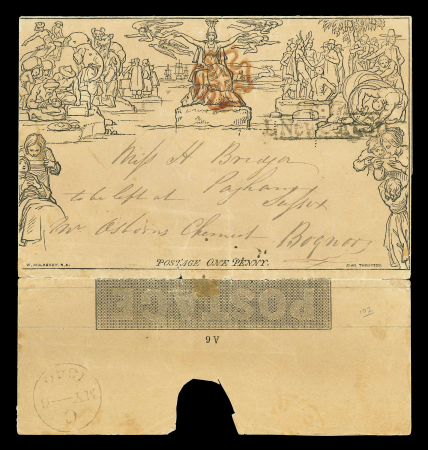 Miss H Bridger
to be left at Pagham
Sussex
Mr Osborns Chemist Bognor
W. MULREADY, R.A.
POSTAGE ONE PENNY.
JOHN THOMPSON
POSTAGE
9 V
C
MY 6
1840